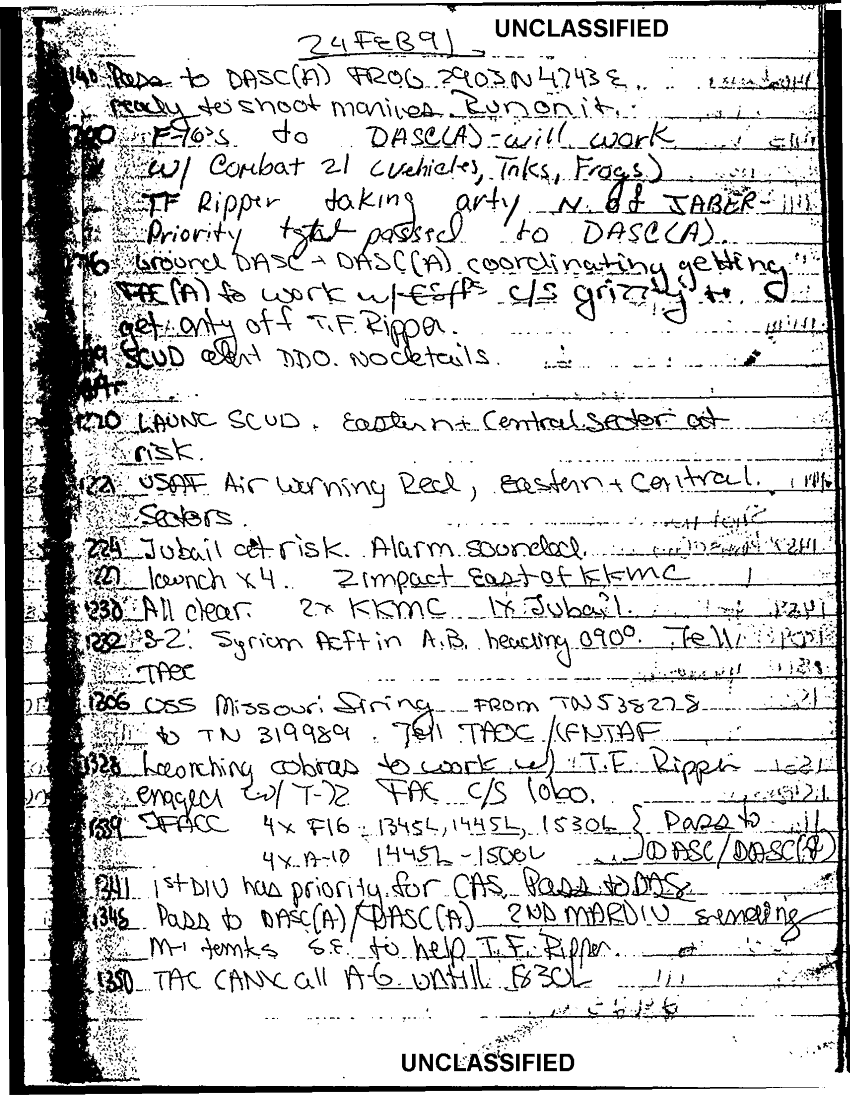 UNCLASSIFIED
24 FEB 91
1140 Pass to DASC(A) FROG 2903N 4743E
ready to shoot marines. Run on it.
F-16's to DASC(A) - will work
w/ Combat 21 (vehicles, Tnks, Frogs)
TF Ripper taking arty N of JABER-
Priority tgt passed to DASC(A).
Ground DASC + DASC(A) coordinating getting
FAC(A) to work w/ c/s grizzly to
get arty off T.F. Ripper.
SCUD alert DDO. No details.
1220 LAUNC SCUD. Eastern + Central Sector at
risk.
1221 USAF Air Warning Red, Eastern + Central
Sectors.
1224 Jubail at risk. Alarm sounded.
1227 launch x 4. 2 impact East of KKMC
1230 All clear. 2x KKMC 1x Jubail.
1232 S-2: Syrian Acft in A.B. heading 090°. Tell
TAOC
1306 USS Missouri: Firing FROM TN 538278
to TN 319989. Tell TAOC/
1328 Launching cobras to work w/ T.F. Ripper
engaged w/ T-72 FAC c/s lobo.
1339 JFACC 4x F16 - 1345L, 1445L, 1530L } Pass to
4x A-10 1445L - 1500L DASC/DASC(A)
1341 1st DIV has priority for CAS. Pass to DASC
1345 Pass to DASC(A)/DASC(A) 2ND MARDIV sending
M-1 tanks S.E. to help T.F. Ripper.
1350 TAC CANX all A-6 UNTILL 1830L
UNCLASSIFIED